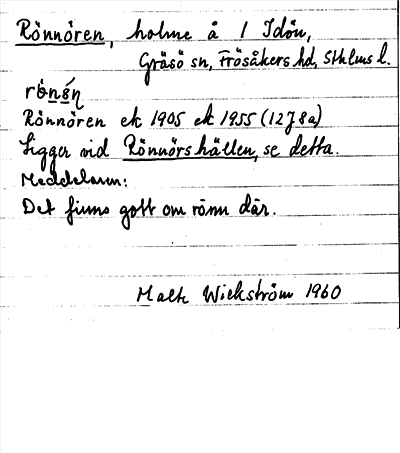 Rönnören, holme å 1 Idön,
Gräsö sn, Frösåkers hd, Sthlms l.
rö̀nǿŋ
Rönnören ek 1905 ek 1955 (12J8a)
Ligger vid Rönnörshällen, se detta.
Meddelaren:
Det finns gott om rönn där.
Malte Wickström 1960